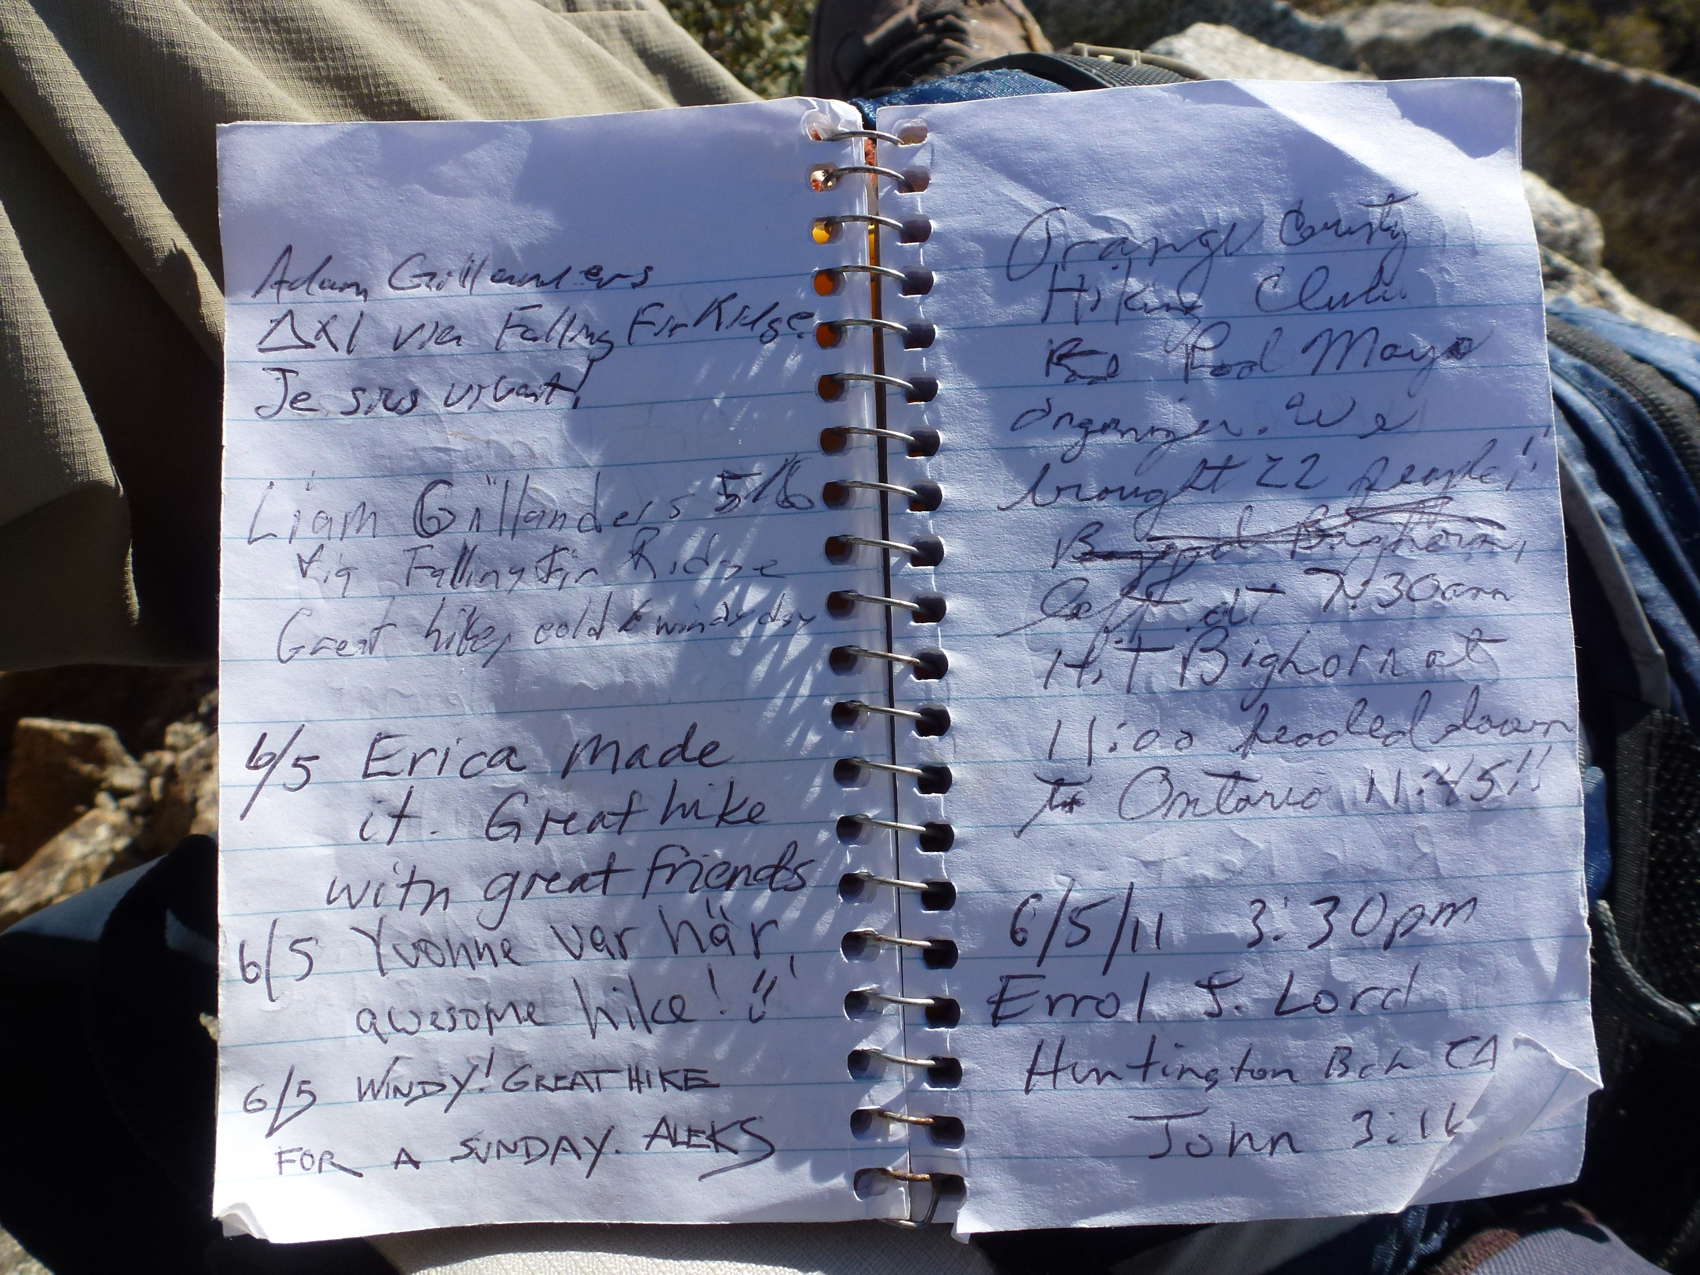 Adam Gillanders
Δx1 via Falling Fir Ridge
Je suis vivant!
Liam Gillanders 5/6
Via Falling Fir Ridge
Great hike, cold & windy day
6/5 Erica made
it. Great hike
with great friends
6/5 Yvonne var här,
awesome hike!
6/5 WINDY! GREAT HIKE
FOR A SUNDAY. ALEKS
Orange County
Hiking Club
Mayo
Organizer. We
brought 22 people!!
left at 7:30am
Hit Bighorn at
11:00 headed down
to Ontario 11:45!!
6/5/11 3:30pm
Errol J. Lord
Huntington Bch CA
John 3:16